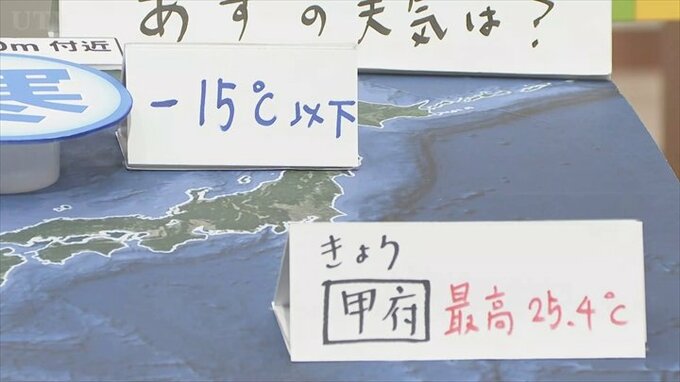 UTY
あすの天気は?
0m付近
寒
-15℃以下
きょう
甲府 最高25.4℃